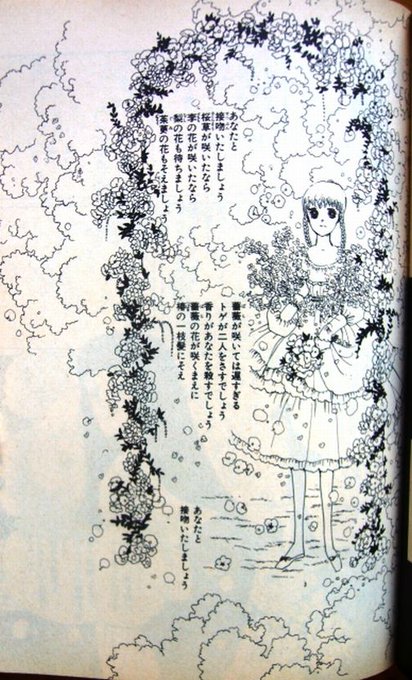 あなたと
接吻いたしましょう
桜草が咲いたなら
李の花が咲いたなら
梨の花も待ちましょう
茱萸の花もそえましょう
薔薇が咲いては遅すぎる
トゲが二人をさすでしょう
香りがあなたを殺すでしょう
薔薇の花が咲くまえに
椿の一枝髪にそえ
あなたと
接吻いたしましょう